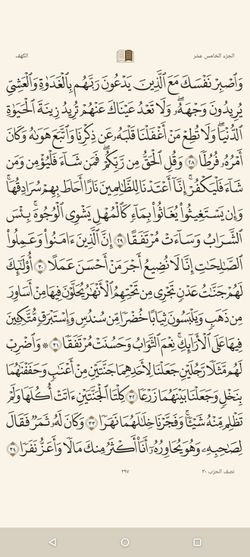 الجزء الخامس عشر
الكهف
وَٱصْبِرْ نَفْسَكَ مَعَ ٱلَّذِينَ يَدْعُونَ رَبَّهُم بِٱلْغَدَوٰةِ وَٱلْعَشِىِّ
يُرِيدُونَ وَجْهَهُۥ وَلَا تَعْدُ عَيْنَاكَ عَنْهُمْ تُرِيدُ زِينَةَ ٱلْحَيَوٰةِ
ٱلدُّنْيَا وَلَا تُطِعْ مَنْ أَغْفَلْنَا قَلْبَهُۥ عَن ذِكْرِنَا وَٱتَّبَعَ هَوَىٰهُ وَكَانَ
أَمْرُهُۥ فُرُطًا ٢٨ وَقُلِ ٱلْحَقُّ مِن رَّبِّكُمْ فَمَن شَآءَ فَلْيُؤْمِن وَمَن
شَآءَ فَلْيَكْفُرْ إِنَّآ أَعْتَدْنَا لِلظَّٰلِمِينَ نَارًا أَحَاطَ بِهِمْ سُرَادِقُهَا
وَإِن يَسْتَغِيثُوا۟ يُغَاثُوا۟ بِمَآءٍ كَٱلْمُهْلِ يَشْوِى ٱلْوُجُوهَ بِئْسَ
ٱلشَّرَابُ وَسَآءَتْ مُرْتَفَقًا ٢٩ إِنَّ ٱلَّذِينَ ءَامَنُوا۟ وَعَمِلُوا۟
ٱلصَّٰلِحَٰتِ إِنَّا لَا نُضِيعُ أَجْرَ مَنْ أَحْسَنَ عَمَلًا ٣٠ أُو۟لَٰٓئِكَ
لَهُمْ جَنَّٰتُ عَدْنٍ تَجْرِى مِن تَحْتِهِمُ ٱلْأَنْهَٰرُ يُحَلَّوْنَ فِيهَا مِنْ أَسَاوِرَ
مِن ذَهَبٍ وَيَلْبَسُونَ ثِيَابًا خُضْرًا مِّن سُندُسٍ وَإِسْتَبْرَقٍ مُّتَّكِـِٔينَ
فِيهَا عَلَى ٱلْأَرَآئِكِ نِعْمَ ٱلثَّوَابُ وَحَسُنَتْ مُرْتَفَقًا ٣١ وَٱضْرِبْ
لَهُم مَّثَلًا رَّجُلَيْنِ جَعَلْنَا لِأَحَدِهِمَا جَنَّتَيْنِ مِنْ أَعْنَٰبٍ وَحَفَفْنَٰهُمَا
بِنَخْلٍ وَجَعَلْنَا بَيْنَهُمَا زَرْعًا ٣٢ كِلْتَا ٱلْجَنَّتَيْنِ ءَاتَتْ أُكُلَهَا وَلَمْ
تَظْلِم مِّنْهُ شَيْـًٔا وَفَجَّرْنَا خِلَٰلَهُمَا نَهَرًا ٣٣ وَكَانَ لَهُۥ ثَمَرٌ فَقَالَ
لِصَٰحِبِهِۦ وَهُوَ يُحَاوِرُهُۥٓ أَنَا۠ أَكْثَرُ مِنكَ مَالًا وَأَعَزُّ نَفَرًا ٣٤
نصف الحزب ٣٠
٢٩٧